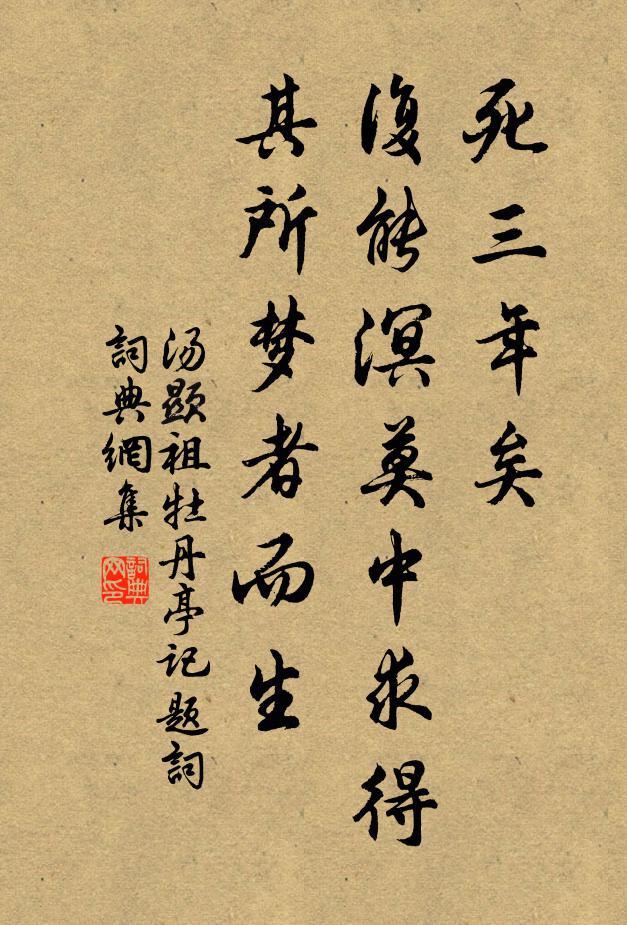 死三年矣
復能溟莫中求得
其所梦者而生
汤顯祖牡丹亭记题詞
詞典網集
詞典網印